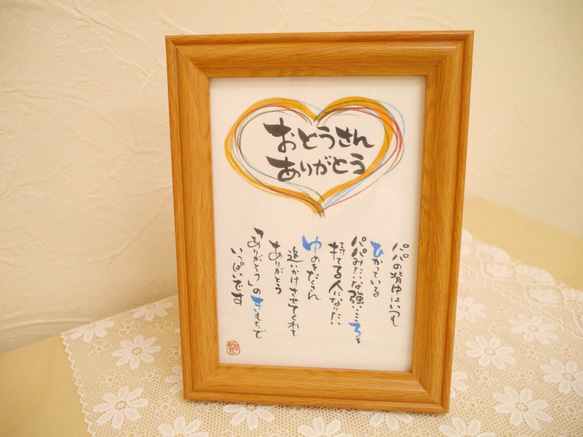 おとうさん
ありがとう
パパの背中はいつも
ひかっている
パパみたいな強いこころを
持てる人になりたい
ゆめをたくさん
追いかけさせてくれて
ありがとう
「ありがとう」の きもちで
いっぱいです